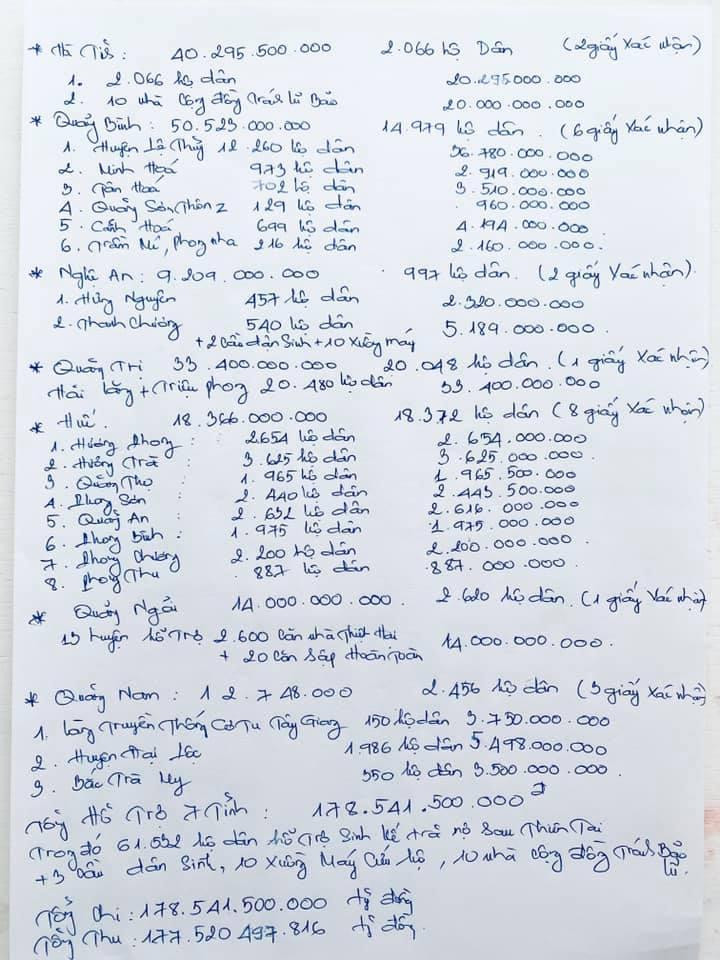 * Hà Tĩnh : 40.295.500.000 2.066 hộ Dân (2 giấy xác nhận)
1. 2.066 hộ dân 20.295.000.000
2. 10 nhà cộng đồng tránh lũ Bão 20.000.000.000
* Quảng Bình : 50.523.000.000 14.979 hộ dân. (6 giấy xác nhận)
1. Huyện Lệ Thủy 12.260 hộ dân 36.780.000.000
2. Minh Hoá 973 hộ dân 2.919.000.000
3. Tân Hoá 702 hộ dân 3.510.000.000
4. Quảng Sơn, Thôn 2 129 hộ dân 960.000.000
5. Cảnh Hoá 699 hộ dân 4.194.000.000.
6. Trằm Mé, phong nha 216 hộ dân 2.160.000.000.
* Nghệ An : 9.209.000.000 997 hộ dân. (2 giấy xác nhận)
1. Hưng Nguyên 457 hộ dân 2.320.000.000
2. Thanh Chương 540 hộ dân 5.189.000.000.
+ 2 cầu dân sinh + 10 xuồng máy
* Quảng Trị 33.400.000.000 20.048 hộ dân. (1 giấy xác nhận)
Hải lăng + Triệu phong 20.480 hộ dân 33.400.000.000
* Huế. 18.366.000.000 18.372 hộ dân (8 giấy xác nhận)
1. Hương Phong : 2.654 hộ dân 2.654.000.000
2. Hương Trà : 3.625 hộ dân 3.625.000.000
3. Quảng Thọ : 1.965 hộ dân 1.965.500.000
4. Phong Sơn : 2.440 hộ dân 2.443.500.000
5. Quảng An : 2.632 hộ dân 2.616.000.000
6. Phong Bình : 1.975 hộ dân 1.975.000.000
7. Phong Chương 2.200 hộ dân 2.200.000.000.
8. Phong Thu 887 hộ dân 887.000.000.
* Quảng Ngãi 14.000.000.000. 2.620 hộ dân. (1 giấy xác nhận)
13 huyện hỗ trợ 2.600 căn nhà Thiệt Hại 14.000.000.000.
+ 20 căn sập Hoàn Toàn
* Quảng Nam : 12.748.000 2.456 hộ dân (3 giấy xác nhận)
1. làng Truyền Thống Cơ Tu Tây Giang 150 hộ dân 3.750.000.000
2. Huyện Đại Lộc 1.986 hộ dân 5.498.000.000
3. Bắc Trà My 350 hộ dân 3.500.000.000.
Tổng Hỗ Trợ 7 Tỉnh : 178.541.500.000
Trong đó 61.532 hộ dân hỗ trợ Sinh kế trả nợ sau Thiên Tai
+ 3 cầu dân Sinh, 10 Xuồng Máy Cứu hộ, 10 nhà cộng đồng tránh Bão lũ.
Tổng Chi : 178.541.500.000 tỷ đồng
Tổng Thu : 177.520.497.816 tỷ đồng.